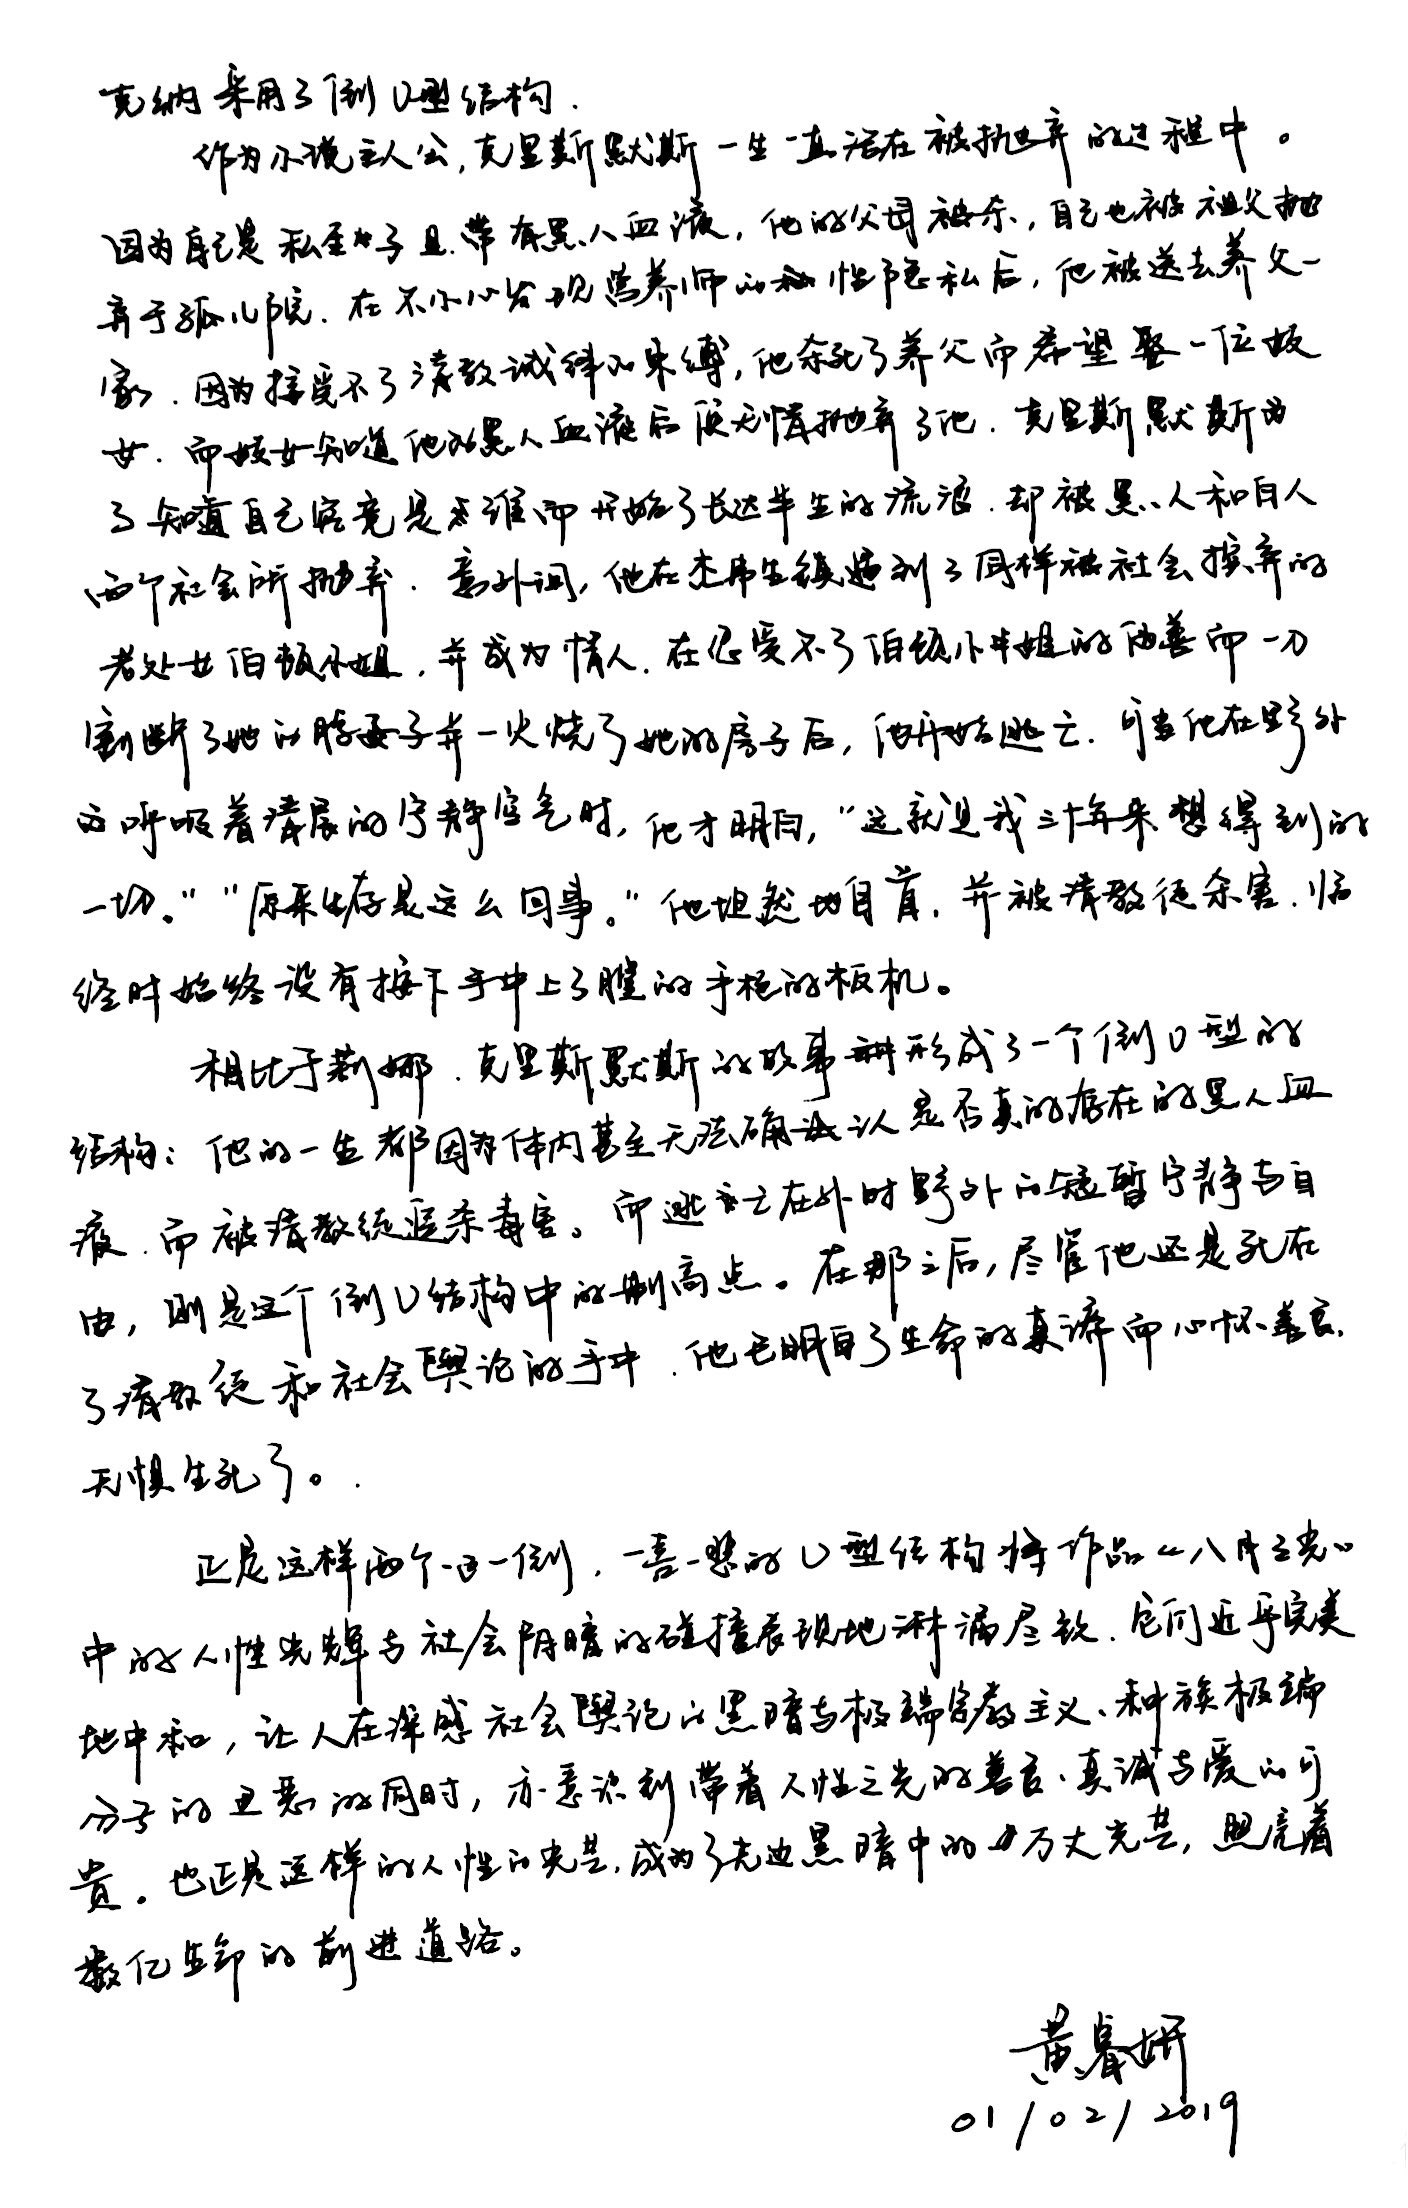 克纳采用了倒U型结构.
作为小说主人公,克里斯默斯一生一直活在被抛弃的过程中。
因为自己是私生子且带有黑人血液,他的父母被杀,自己也被祖父抛
弃于孤儿院.在不小心发现营养师的性隐私后,他被送去养父一
家.因为接受不了清教诫律的束缚,他杀死了养父而希望娶一位妓
女.而妓女知道他的黑人血液后便无情抛弃了他.克里斯默斯为
了知道自己究竟是谁而开始了长达半生的流浪.却被黑人和白人
两个社会所抛弃.意外间,他在杰弗生镇遇到了同样被社会摈弃的
老处女伯顿小姐,并成为情人.在忍受不了伯顿小姐的伪善而一刀
割断了她的脖子并一火烧了她的房子后,他开始逃亡.可当他在野外
呼吸着清晨的宁静空气时,他才明白,“这就是我三十年来想得到的
一切。”“原来生存是这么回事。”他坦然地自首,并被清教徒杀害.临
终时始终没有按下手中上了膛的手枪的板机。
相比于莉娜.克里斯默斯的故事形成了一个倒U型的
结构:他的一生都因为体内甚至无法确认是否真的存在的黑人血
液.而被清教徒追杀毒害。而逃亡在外时野外的短暂宁静与自
由,则是这个倒U结构中的制高点。在那之后,尽管他还是死在
了清教徒和社会舆论的手中.他已明白了生命的真谛而心怀善意,
无惧生死了。
正是这样两个一正一倒,一喜一悲的U型结构将作品《八月之光》
中的人性光辉与社会阴暗的碰撞表现地淋漓尽致.它们近乎完美
地中和,让人在深感社会舆论的黑暗与极端宗教主义、种族极端
分子的丑恶的同时,亦意识到带着人性之光的善意、真诚与爱的可
贵。也正是这样的人性的光芒,成为了无边黑暗中的万丈光芒,照亮着
数亿生命的前进道路。
黄睿妍
01/02/2019